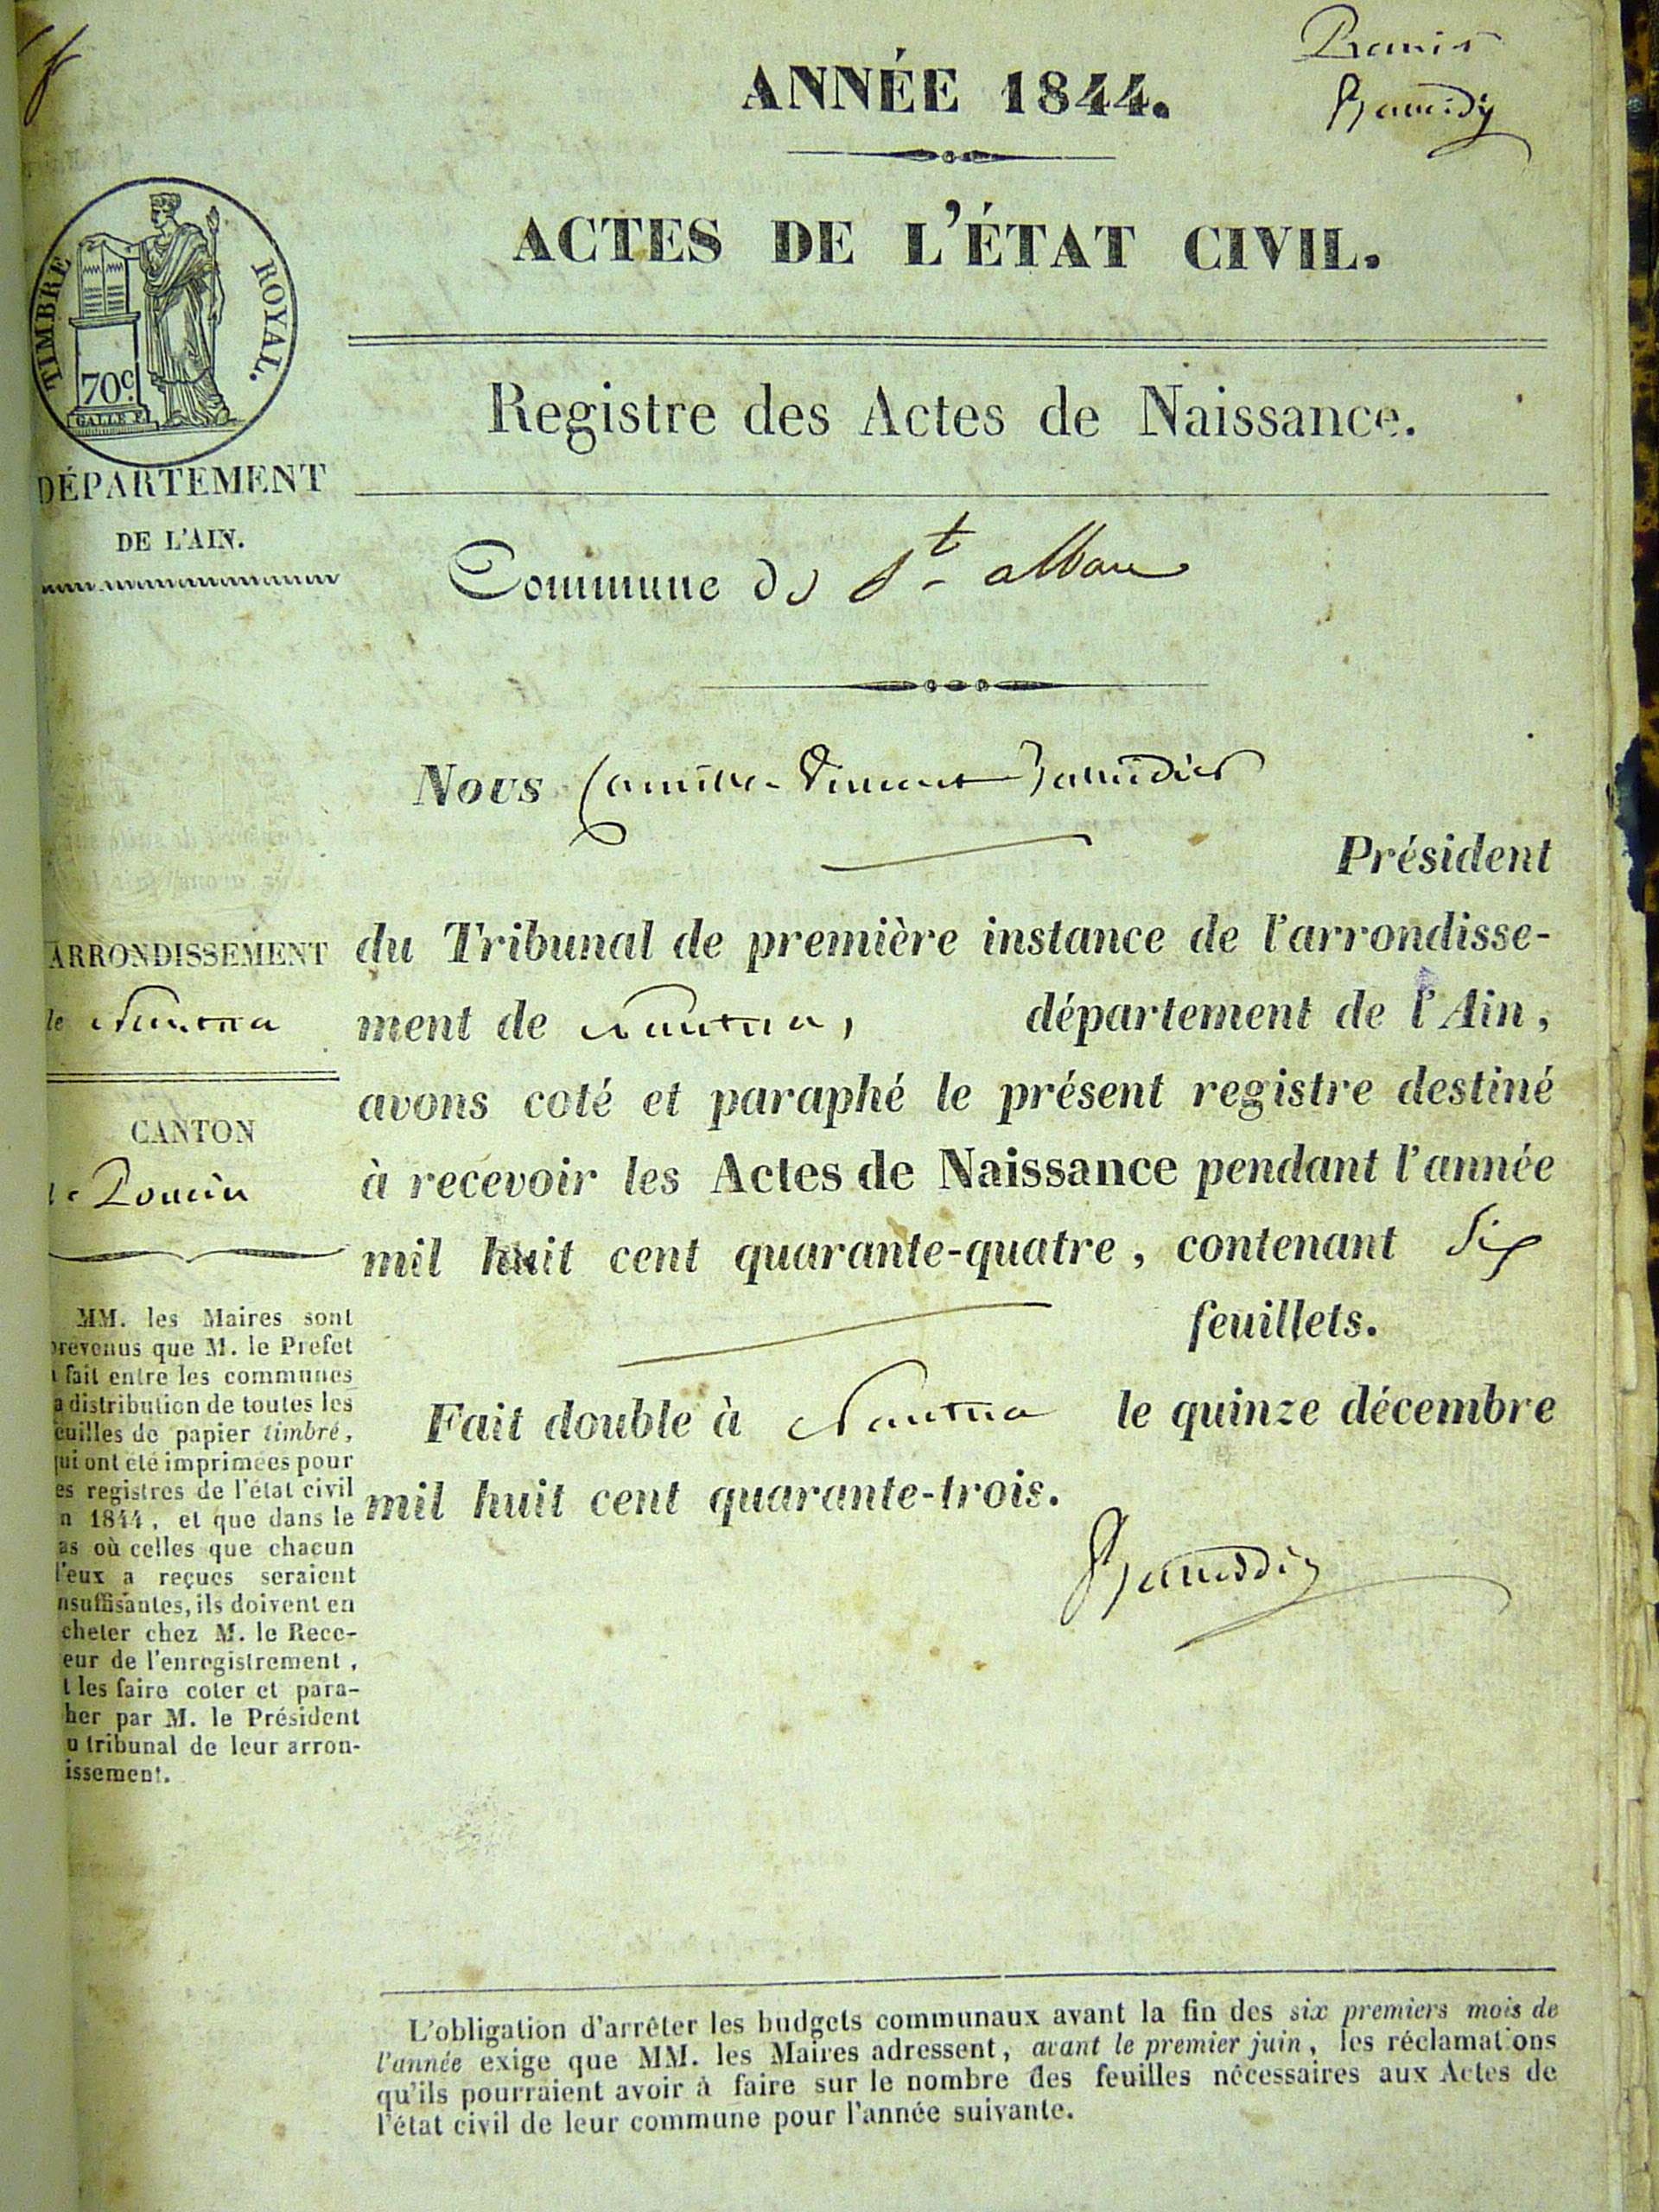 Premier
ANNÉE 1844.
ACTES DE L'ÉTAT CIVIL.
TIMBRE ROYAL.
70c.
Registre des Actes de Naissance.
DÉPARTEMENT
DE L'AIN.
Commune de St alban
Nous Camille Vincent
Président
ARRONDISSEMENT
de Nantua
du Tribunal de première instance de l'arrondisse-
ment de Nantua, département de l'Ain,
avons coté et paraphé le présent registre destiné
à recevoir les Actes de Naissance pendant l'année
mil huit cent quarante-quatre, contenant Six
feuillets.
CANTON
de Poncin
Fait double à Nantua le quinze décembre
mil huit cent quarante-trois.
MM. les Maires sont
prévenus que M. le Préfet
a fait entre les communes
a distribution de toutes les
euilles de papier timbré,
qui ont été imprimées pour
es registres de l'état civil
n 1844, et que dans le
as où celles que chacun
l'eux a reçues seraient
nsuffisantes, ils doivent en
cheter chez M. le Rece-
eur de l'enregistrement,
t les faire coter et para-
her par M. le Président
u tribunal de leur arron-
issement.
L'obligation d'arrêter les budgets communaux avant la fin des six premiers mois de
l'année exige que MM. les Maires adressent, avant le premier juin, les réclamations
qu'ils pourraient avoir à faire sur le nombre des feuilles nécessaires aux Actes de
l'état civil de leur commune pour l'année suivante.